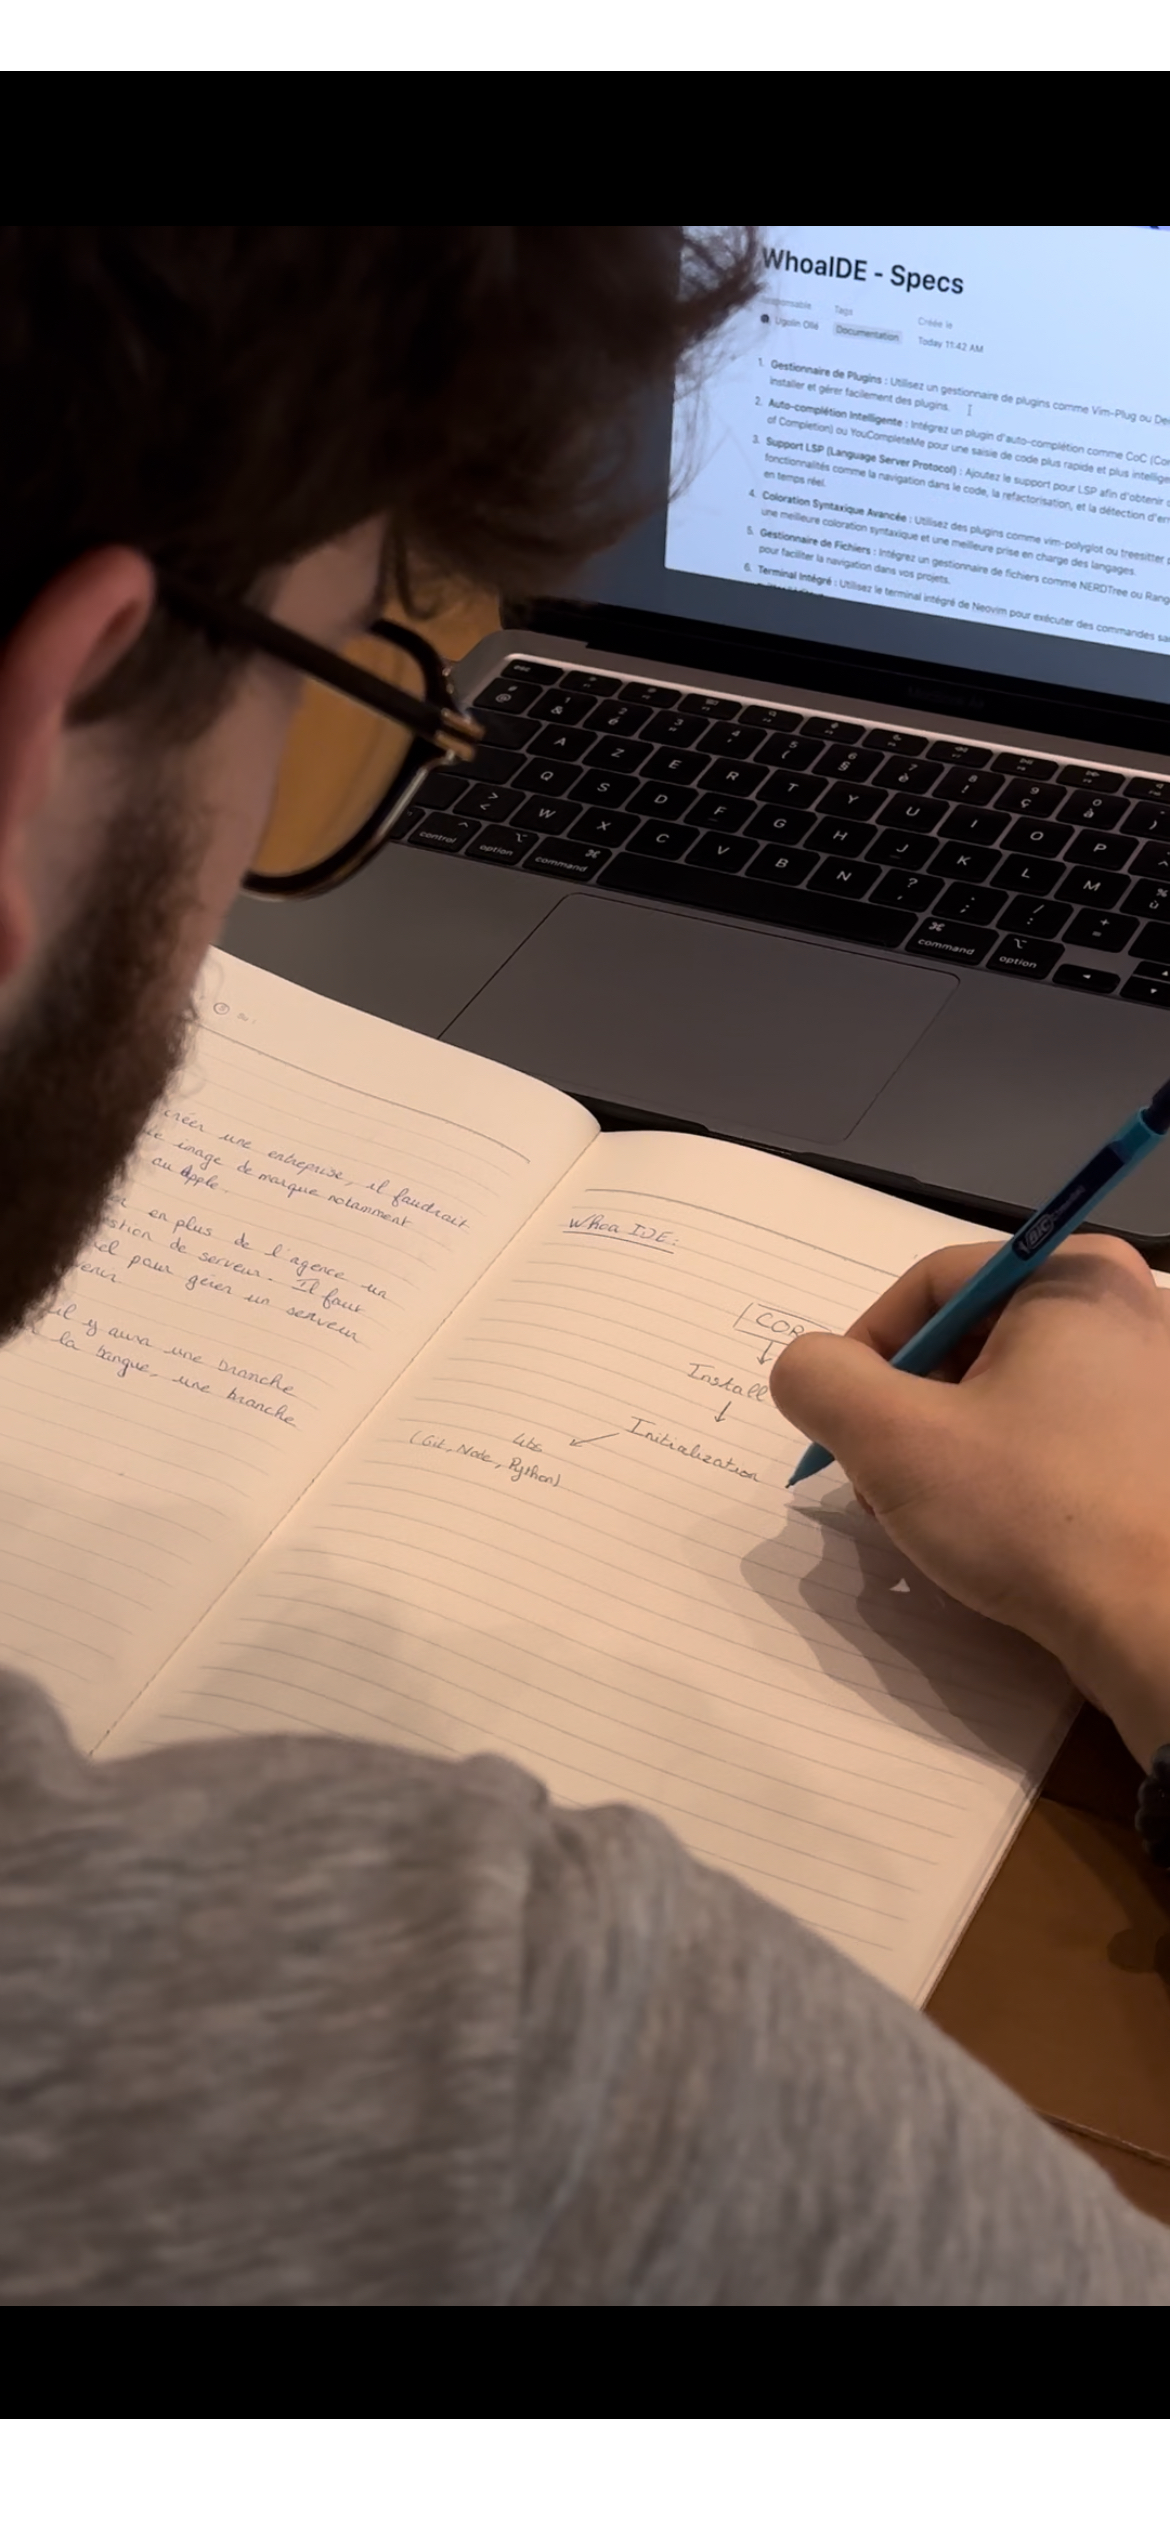 WhoaIDE - Specs
Responsable Tags Créée le
Ugolin Ollé Documentation Today 11:42 AM
1. Gestionnaire de Plugins : Utilisez un gestionnaire de plugins comme Vim-Plug ou
installer et gérer facilement des plugins.
2. Auto-complétion Intelligente : Intégrez un plugin d'auto-complétion comme CoC
of Completion) ou YouCompleteMe pour une saisie de code plus rapide et plus
3. Support LSP (Language Server Protocol) : Ajoutez le support pour LSP afin d'obtenir
fonctionnalités comme la navigation dans le code, la refactorisation, et la détection
en temps réel.
4. Coloration Syntaxique Avancée : Utilisez des plugins comme vim-polyglot ou treesitter
une meilleure coloration syntaxique et une meilleure prise en charge des langages.
5. Gestionnaire de Fichiers : Intégrez un gestionnaire de fichiers comme NERDTree ou
pour faciliter la navigation dans vos projets.
6. Terminal Intégré : Utilisez le terminal intégré de Neovim pour exécuter des commandes
esc
@ # & 1 é 2 " 3 ' 4 ( 5 § 6 è 7 ! 8 ç 9 à 0 )
A Z E R T Y U I O P
Q S D F G H J K L M ù %
> < W X C V B N ? , . ; / : + =
control option command command option
créer une entreprise, il faudrait
image de marque notamment
au Apple.
en plus de l'agence un
de serveur. Il faut
pour gérer un serveur
il y aura une branche
la banque, une branche
Whoa IDE:
COR
Install
Initialization
Libs
(Git, Node, Python)
BIC